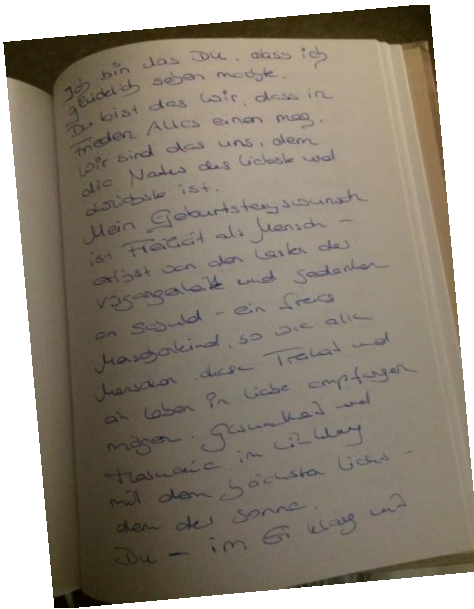 Ich bin das Du, dass ich
glücklich sehen möchte.
Du bist das Wir, dass in
Frieden Alles einen mag.
Wir sind das uns, dem
die Natur das liebste und
ist.
Mein Geburtstagswunsch
ist Freiheit als Mensch –
erlöst von den Lasten der
Vergangenheit und Gedanken
an Schuld – ein freies
Menschenkind, so wie alle
Menschen diese Freiheit und
ein Leben in Liebe empfangen
mögen. Gesundheit und
Harmonie im Einklang
mit dem höchsten Licht –
dem der Sonne.
Du – im Einklang mit